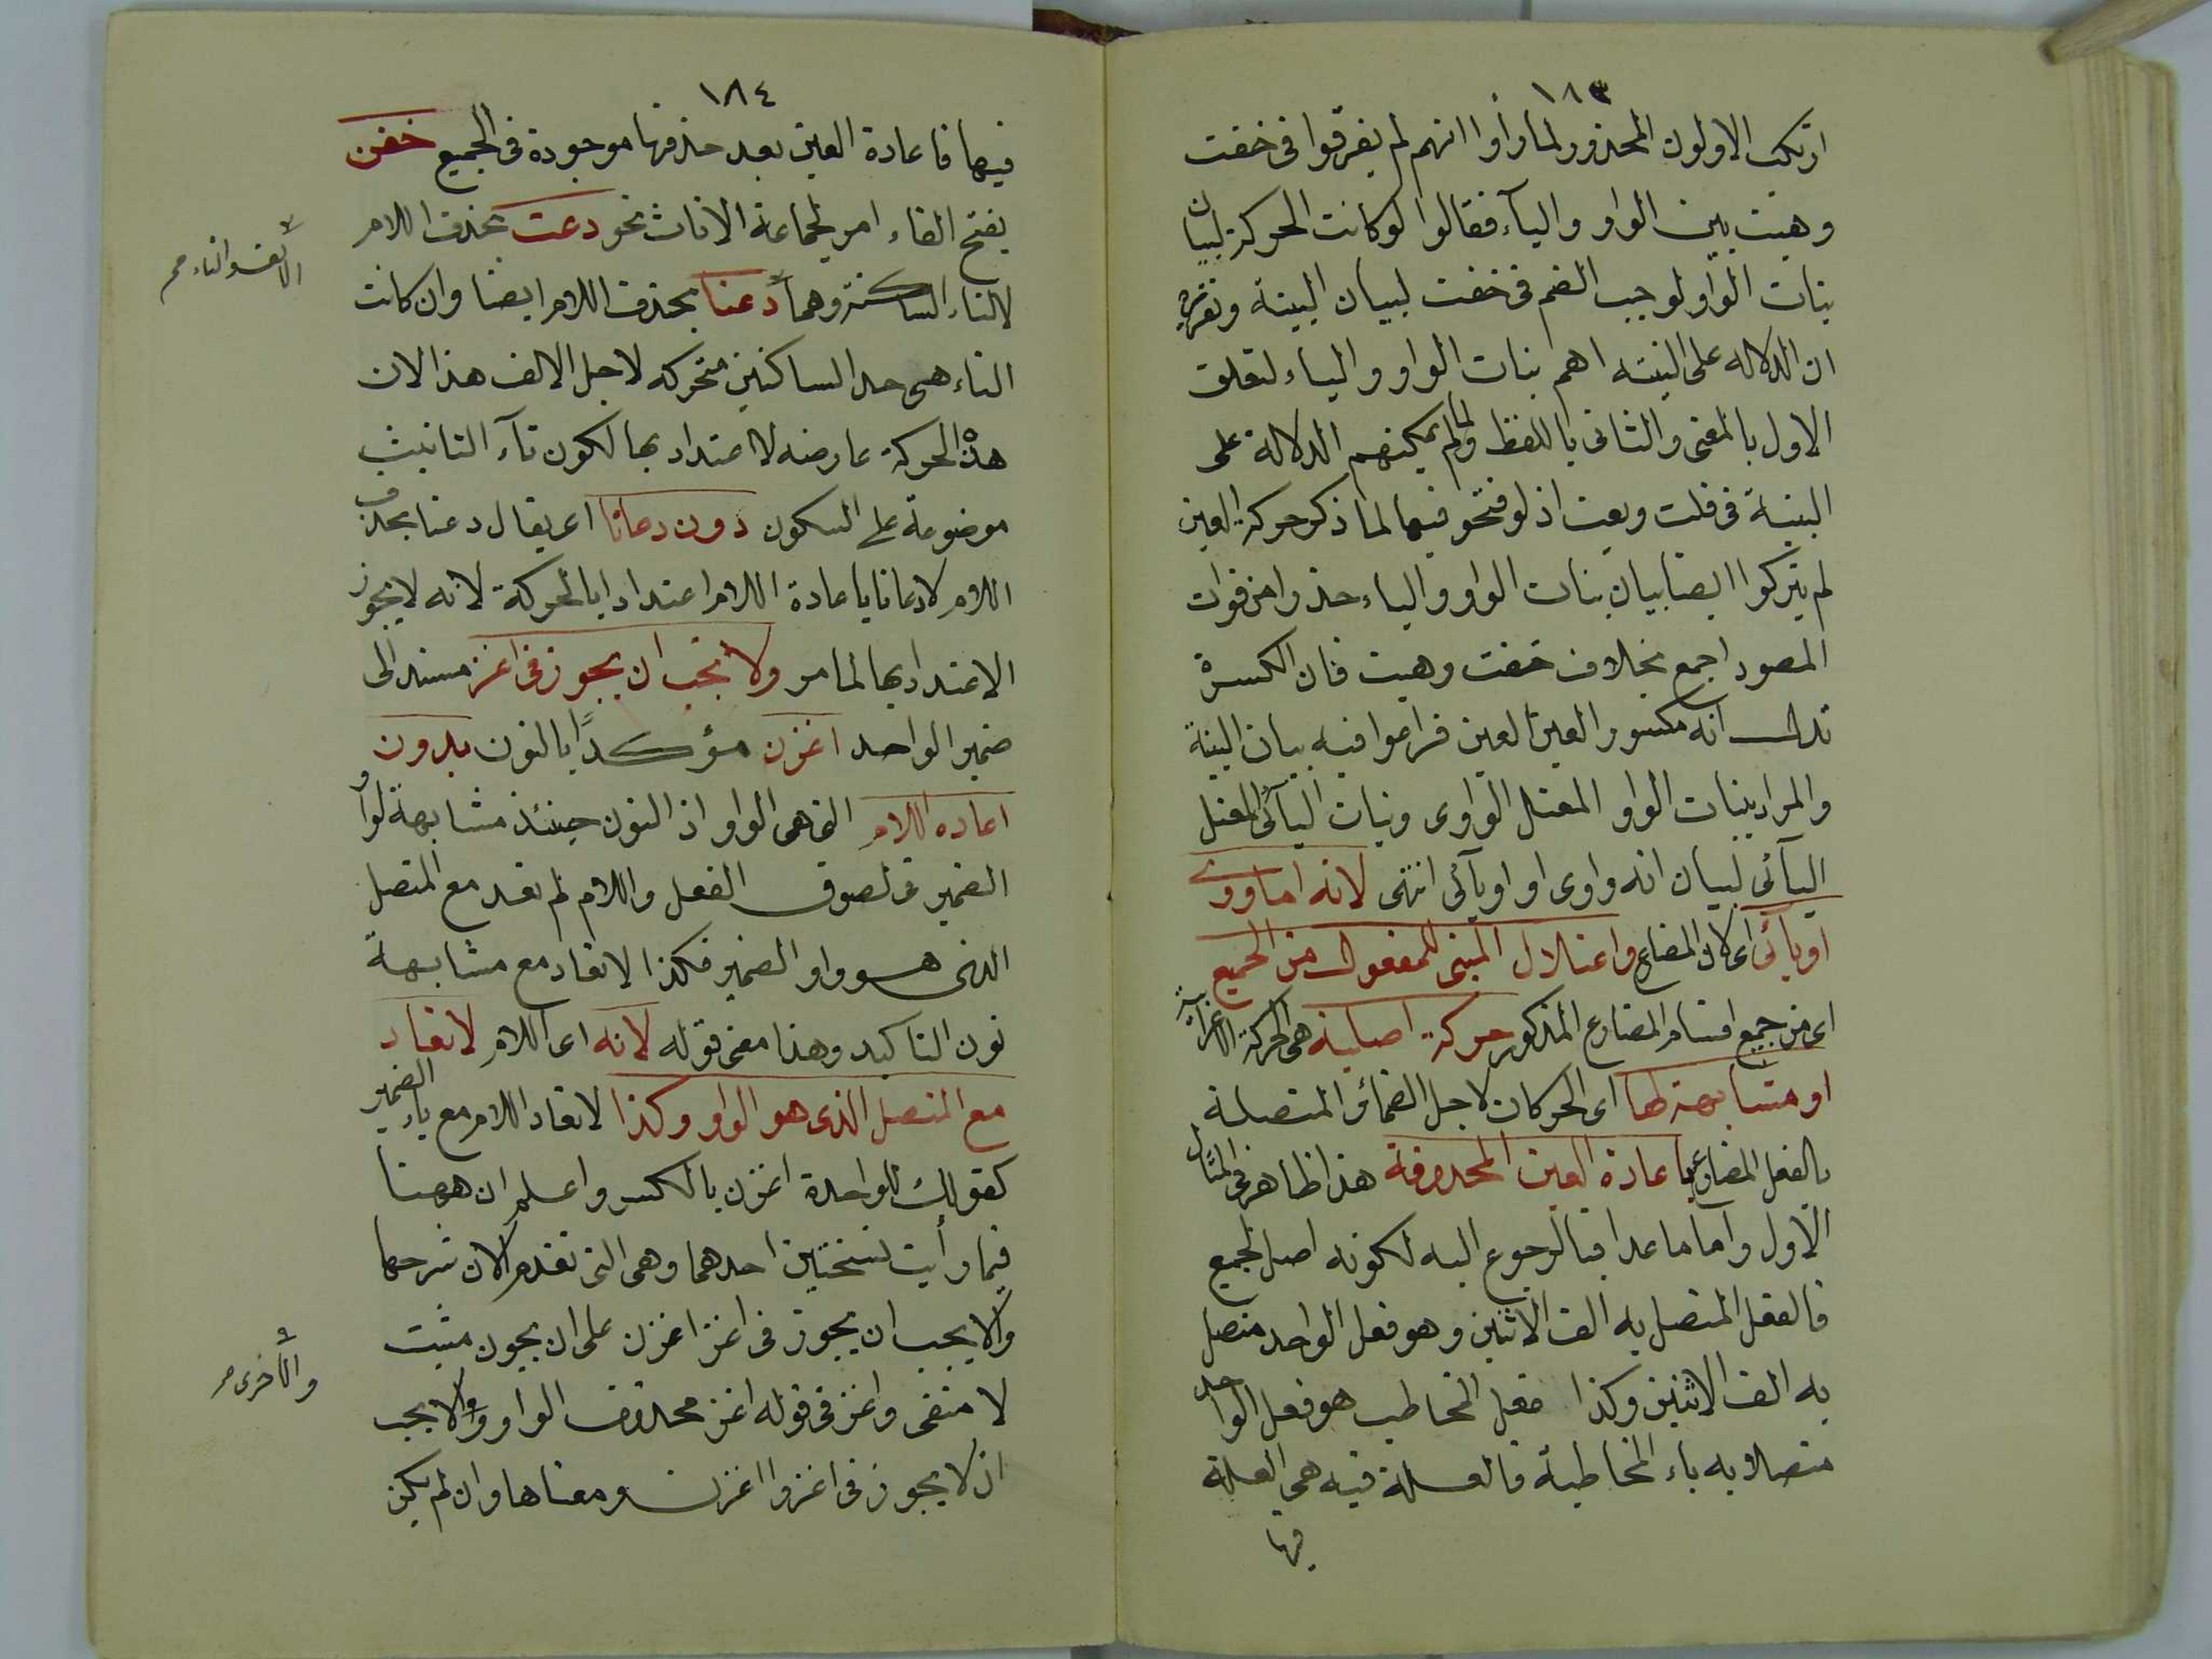 ١٨٣
ارتكب الاولون المحذور لما رأوا انهم لم يفرقوا فى خفت
وهبت بين الواو والياء فقالوا لو كانت الحركة لبيان
بنات الواو لوجب الضم فى خفت لبيان البينة وتقريره
ان الدلاله على البينه اهم بنات الواو والياء لتعلق
الاول بالمعنى والثانى باللفظ ولما لم يمكنهم الدلالة على
البينة فى قلت وبعت اذ لو فتحو فيهما لما ذكر حركة العين
لم يتركوا ايضا بيان بنات الواو والياء حذرا من فوات
المصود اجمع بخلاف خفت وهبت فان الكسرة
تدل انه مكسور العين العين فراموا فيه بيان البنية
والمراد ببنات الواو المعتل الواوى وبنات اليآئى المعتل
اليآئى لبيان انه واوى او اويآئى انتهى لانه اما واوى
اويآئى اى كان المضارع واعتلال المبنى للمفعول من الجميع
اى من جميع اقسام المضارع المذكور حركة اصلية هى الحركة الاعرابية
او مشابهة لها اى الحركات لاجل الضمائر المتصلة
بالفعل المضارع باعادة العين المحذوفة هذا ظاهر فى المثال
الاول واما ما عدا فبالرجوع اليه لكونه اصل الجميع
فالفعل المتصل به الف الاثنين وهو فعل الواحد متصل
به الف الاثنين وكذا فعل المخاطب هو فعل الواحد
متصلا به ياء المخاطبة فالعلة فيه هى العلة
فيها
١٨٤
فيها فاعادة العين بعد حذفها موجودة فى الجميع خفن
بفتح الفاء امر لجماعة الاناث نحو دعت بحذف اللام
لالتاء الساكنة وهما دعتا بحذف اللام ايضا وان كانت
التاء هى حد الساكنين متحركه لاجل الالف هذا لان
هذه الحركة عارضه لا اعتداد بها لكون تآء التانيث
موضوعة على السكون دون دعاتا اى يقال دعتا بحذف
اللام لا دعاتا باعادة اللام اعتدادا بالحركة لانه لا يجوز
الاعتداد بها لما مر ولا يجب ان يجوز فى اغز مسند الى
ضمير الواحد اغزن مؤكدًا بالنون بدون
اعاده اللام التى هى الواو اذ النون حينئذ مشابهة لواو
الضمير فى لصوق الفعل واللام لم تعد مع المتصل
الذى هو واو الضمير فكذا لا تعاد مع مشابهة
نون التاكيد وهذا معنى قوله لانه اى اللام لا تعاد
مع المتصل الذى هو الواو وكذا لا تعاد اللام مع ياء الضمير
كقولك للواحدة اغزن بالكسر واعلم ان ههنا
فيما رأيت نسختين احدهما وهى التى تقدم الان شرحها
والا يجب ان يجوز فى اغز اغزن على ان يجوز مثبت
لا منفى واغز فى قوله اغز محذوف الواو والا يجب
ان لا يجوز فى اغزوا اغزن ومعناها وان لم يكن
الالف والتاء صح
والاخرى صح